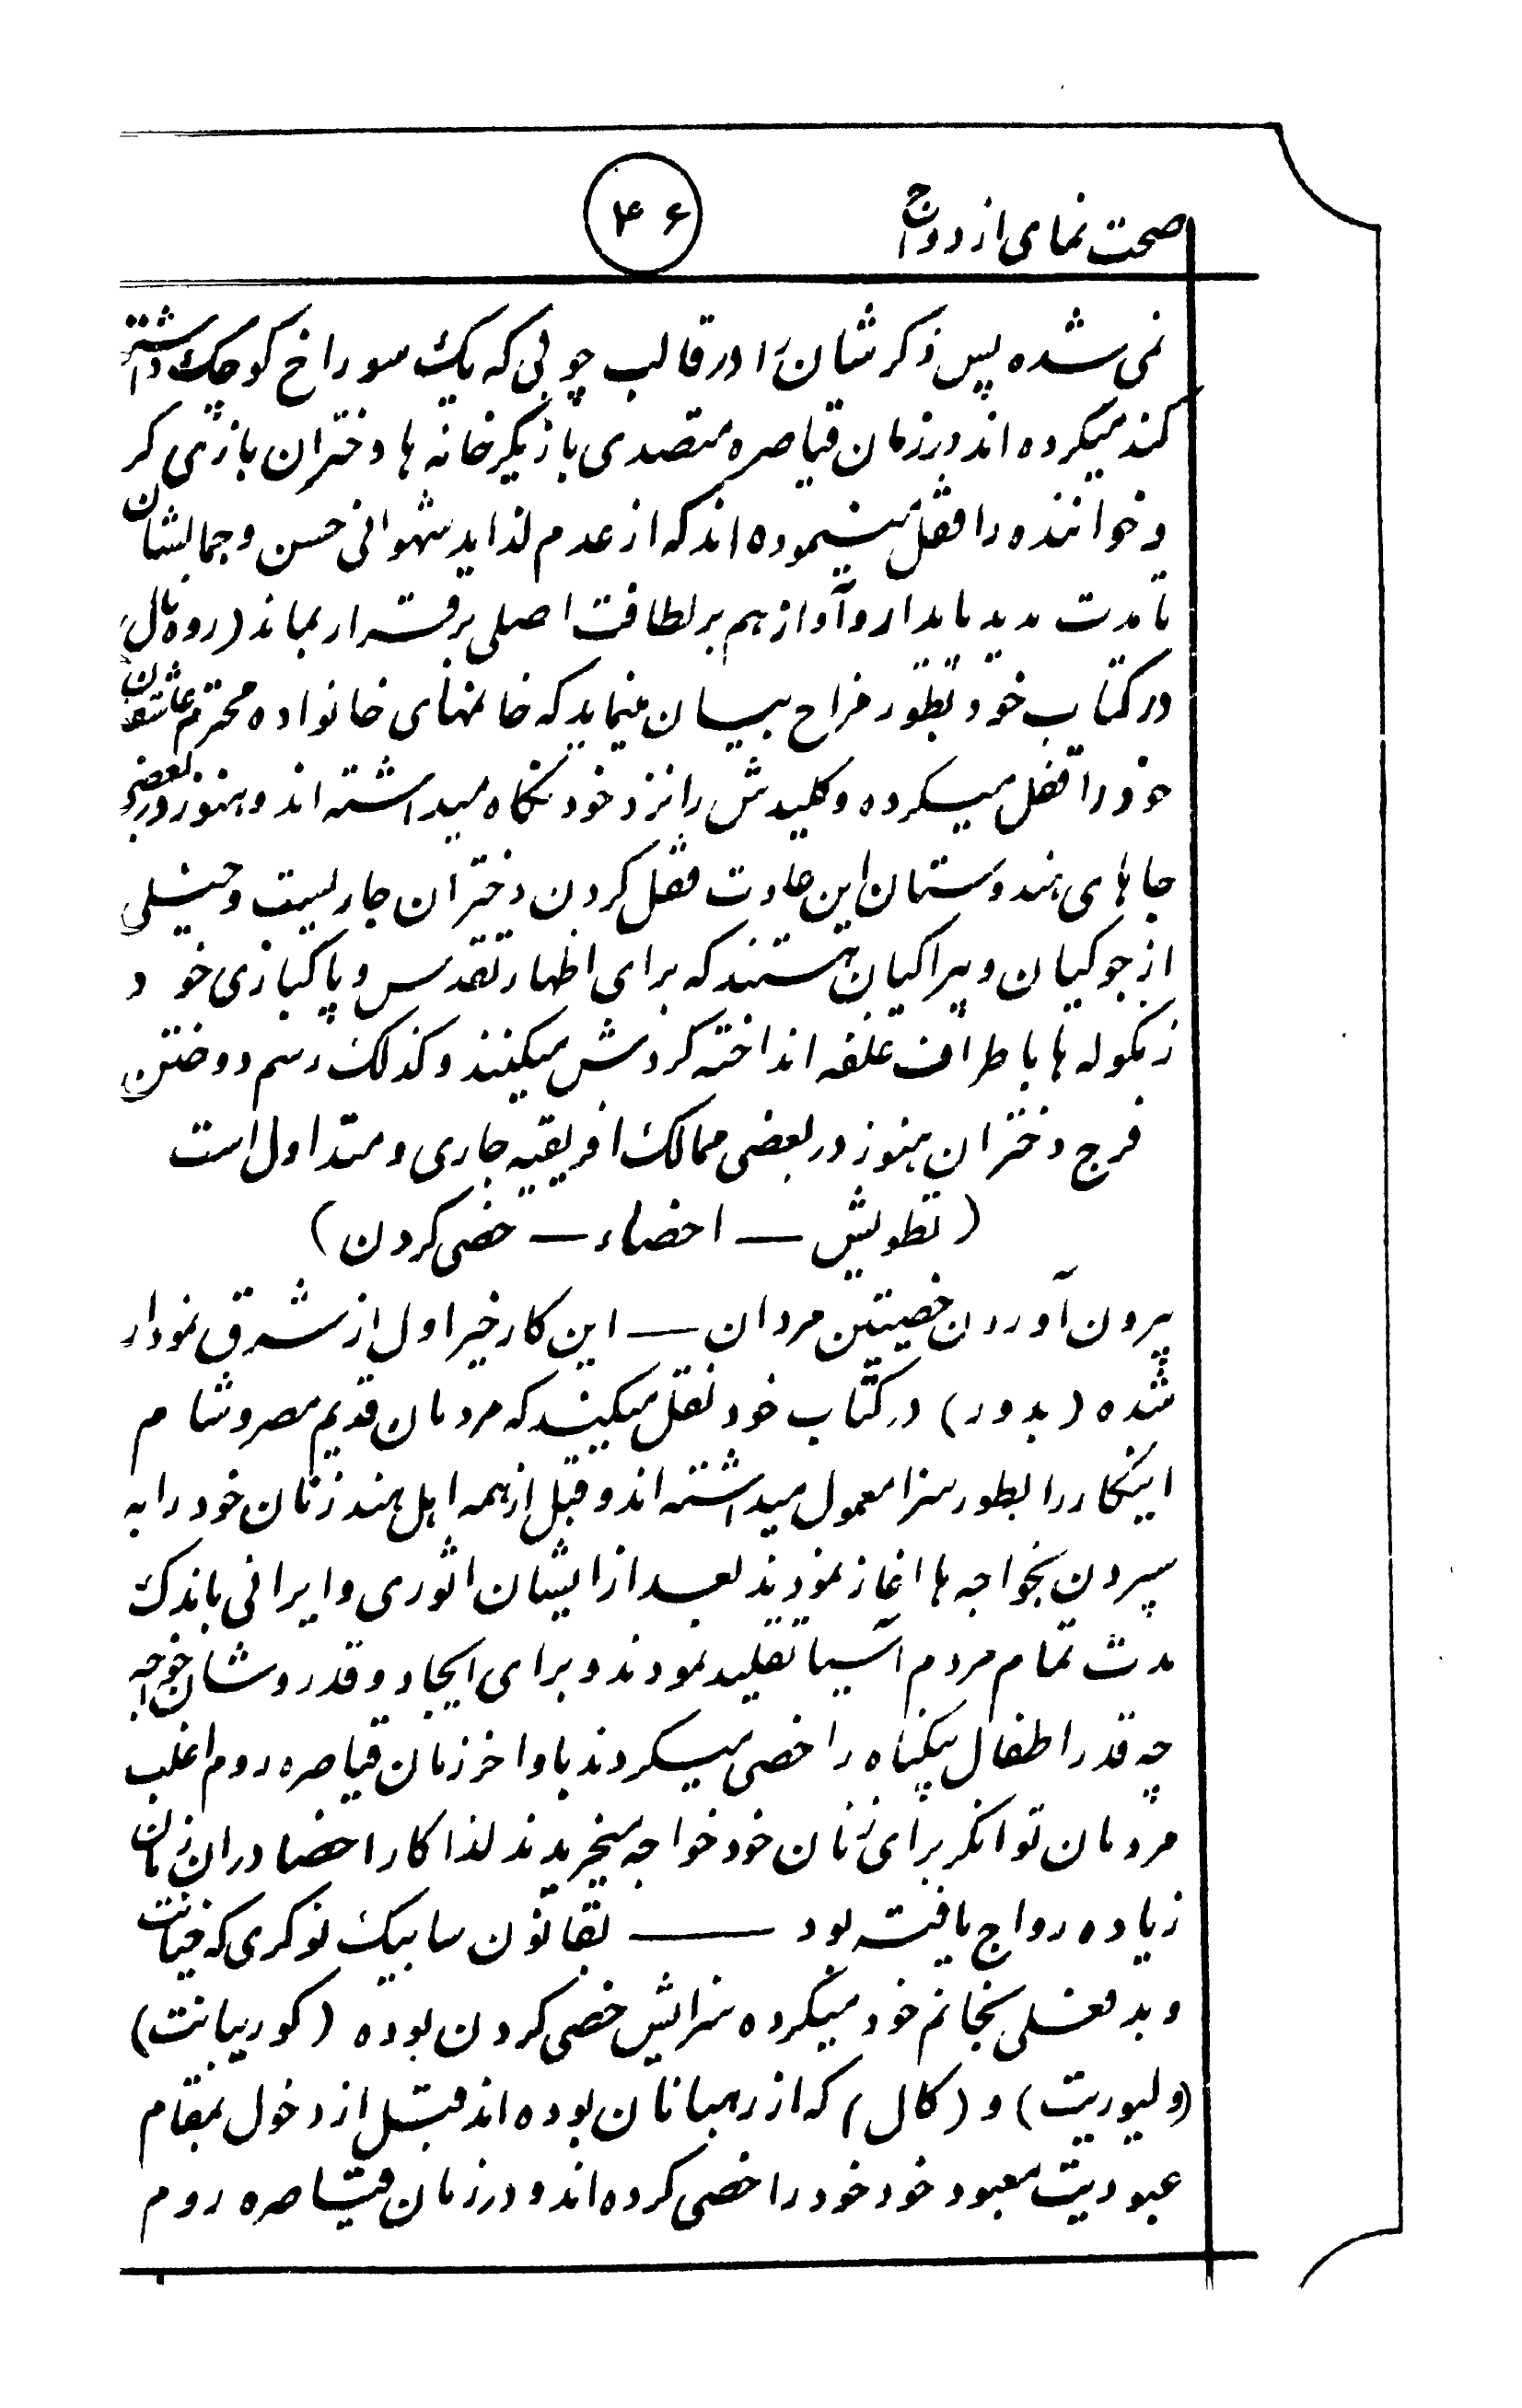 صحت نمای ازدواج
۴۶
نمی شده پس ذکرشان را در قالب چوبی که یک سوراخ کوچک داشته
کند میکرده اند در زمان قیاصره متصدی بازیگرخانه ها دختران بازی گر
و خواننده را قفل مینموده اند که از عدم لذاید شهوانی حسن و جمالشان
تا مدت مدید پایدار و آواز هم بر لطافت اصلی برقرار بماند (روه نال)
در کتاب خود بطور مزاح بیان مینماید که خانمهای خانواده محترم عاشقان
خود را قفل میکرده و کلیدش را نزد خود نگاه میداشته اند و هنوز در بعضی
جاهای هندوستان این عادت قفل کردن دختران جاریست و خیلی
از جوکیان و بیراکیان هستند که برای اظهار تقدس و پاکبازی خود
زنگوله ها باطراف غلفه انداخته گردش میکنند و کذلک رسم دوختن
فرج دختران هنوز در بعضی ممالک افریقیه جاری و متداول است
(تطویش — اخصاء — خصی کردن)
بیرون آوردن خصیتین مردان — این کار خیر اول از شرق نمودار
شده (بدور) در کتاب خود نقل میکند که مردمان قدیم مصر و شام
اینکار را بطور سزا معمول میداشته اند و قبل از همه اهل هند زنان خود را به
سپردن بخواجه ها اغاز نمودند بعد از ایشان اثوری و ایرانی باندک
مدت تمام مردم آسیا تقلید نمودند و برای ایجاد و قدر و شان خواجه
چه قدر اطفال بیگناه را خصی میکردند باواخر زمان قیاصره روم اغلب
مردمان توانگر برای زنان خود خواجه میخریدند لذا کار اخصا در ان زمان
زیاده رواج یافته بود — بقانون سابیک نوکری که خیانت
و بدفعلی بخانم خود میکرده سزایش خصی کردن بوده (کوریبانت)
(ولیوریت) و (کال) که از رهبانان بوده اند قبل از دخول بمقام
عبودیت معبود خود خود را خصی کرده اند و در زمان قیاصره روم